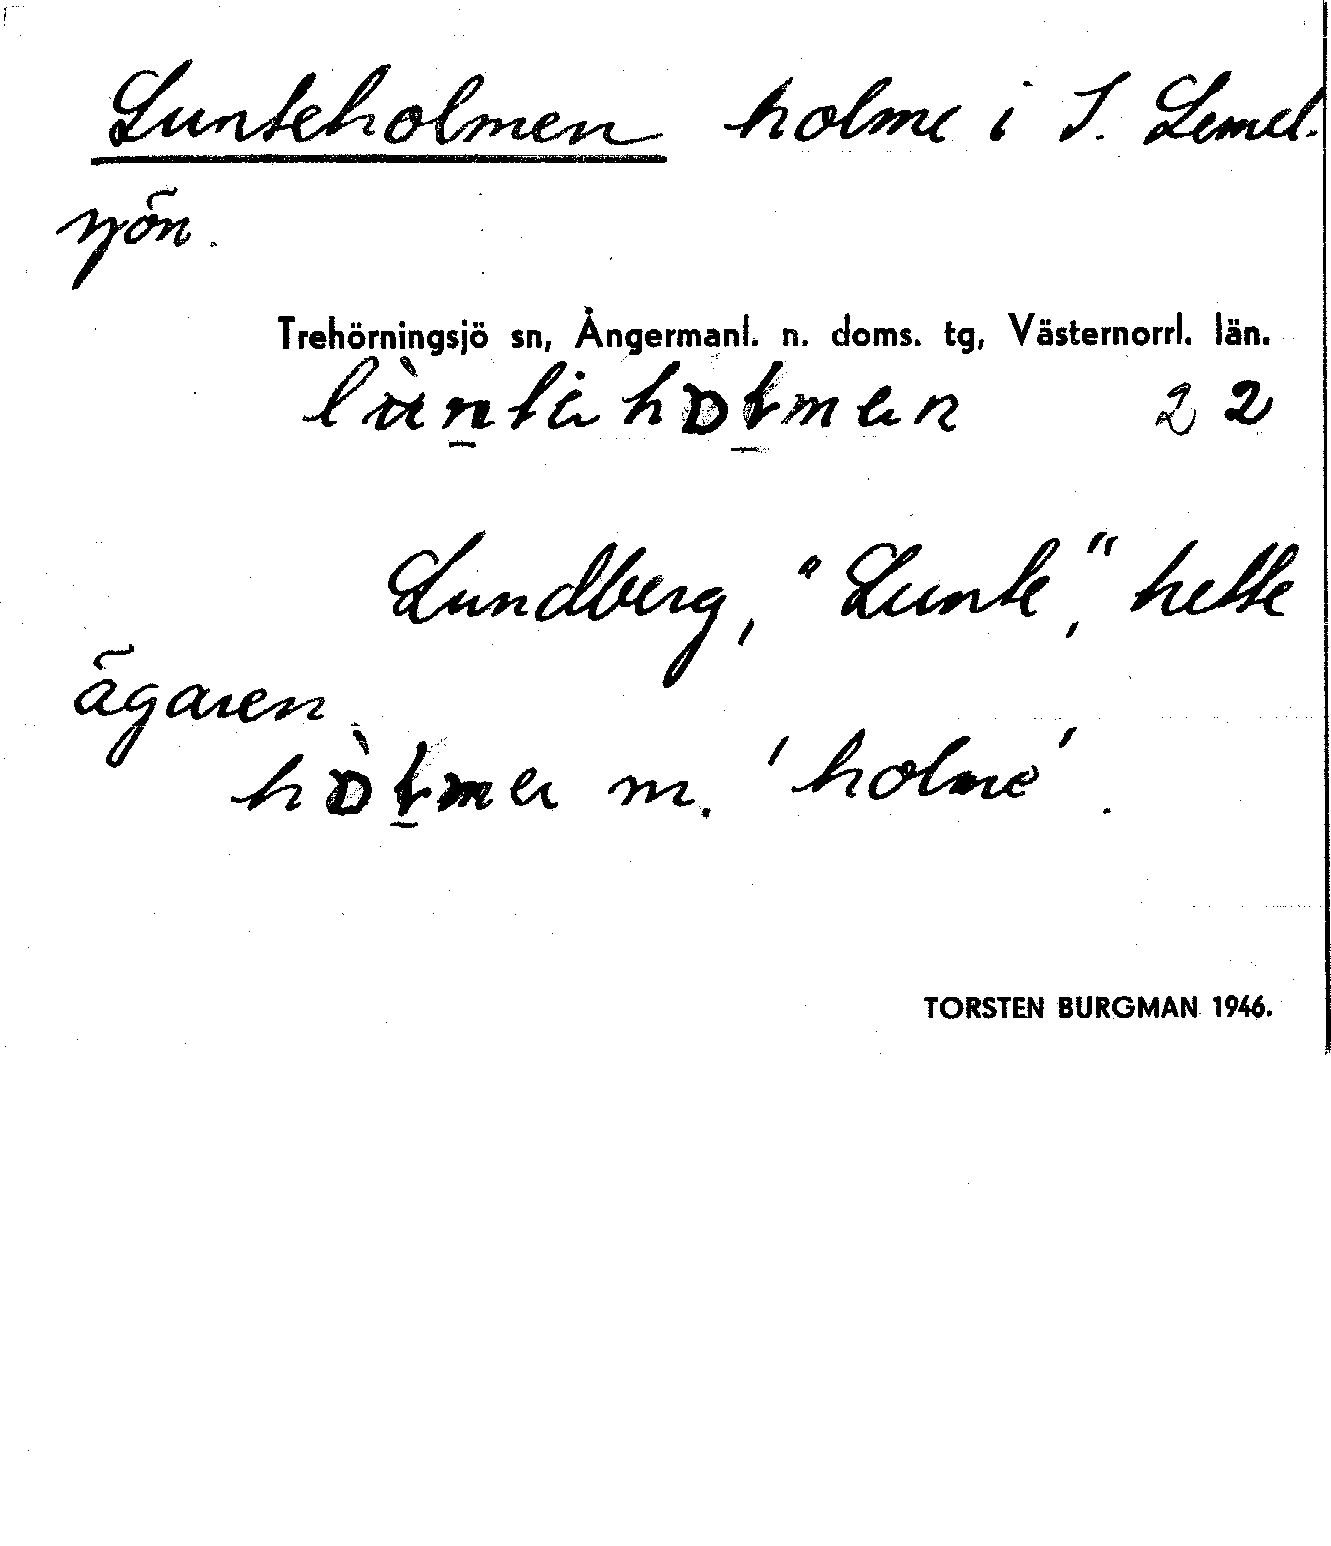 Lunteholmen holme i S. Lemel-
sjön.
Trehörningsjö sn, Ångermanl. n. doms. tg, Västernorrl. län.
22
Lundberg, "Lunte", hette
ägaren
m. 'holme'.
TORSTEN BURGMAN 1946.